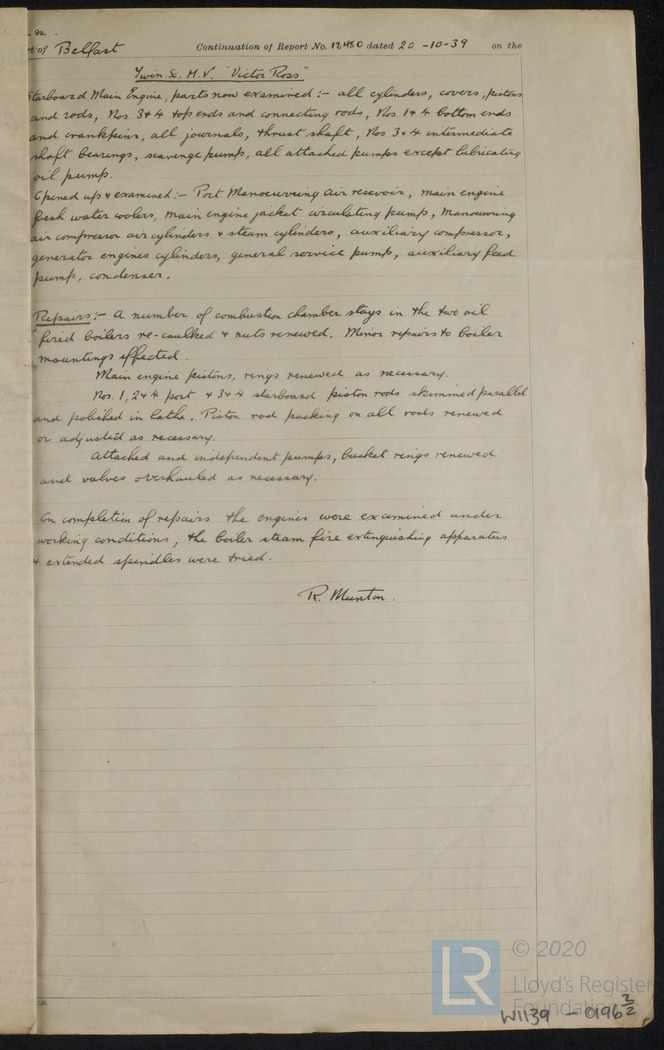 9a.
rt of Belfast Continuation of Report No. 12480 dated 20-10-39 on the
Twin. Sc. M.V. "Victor Ross"
Starboard Main Engine, parts now examined :- all cylinders, covers, pistons
and rods, Nos. 3 & 4 top ends and connecting rods, Nos 1 & 4 bottom ends
and crankpins, all journals, thrust shaft, Nos 3 & 4 intermediate
shaft bearings, scavenge pump, all attached pumps except lubricating
oil pump.
Opened up & examined :- Port Manoeuvring air resevoir, main engine
fresh water coolers, main engine jacket circulating pump, manoeuvring
air compressor air cylinders & steam cylinders, auxiliary compressor,
generator engines cylinders, general service pump, auxiliary feed
pump, condenser.
Repairs :- A number of combustion chamber stays in the two oil
fired boilers re-caulked & nuts renewed. Minor repairs to boiler
mountings effected.
Main engine pistons, rings renewed as necessary.
Nos. 1, 2 & 4 port & 3 & 4 starboard piston rods skimmed parallel
and polished in lathe. Piston rod packing on all rods renewed
or adjusted as necessary.
Attached and independent pumps, bucket rings renewed
and valves overhauled as necessary.
On completion of repairs the engines were examined under
working conditions, the boiler steam fire extinguishing apparatus
& extended spindles were tried.
R. Munton.
LR © 2020
Lloyd's Register
Foundation
W1139 - 0196 2/2